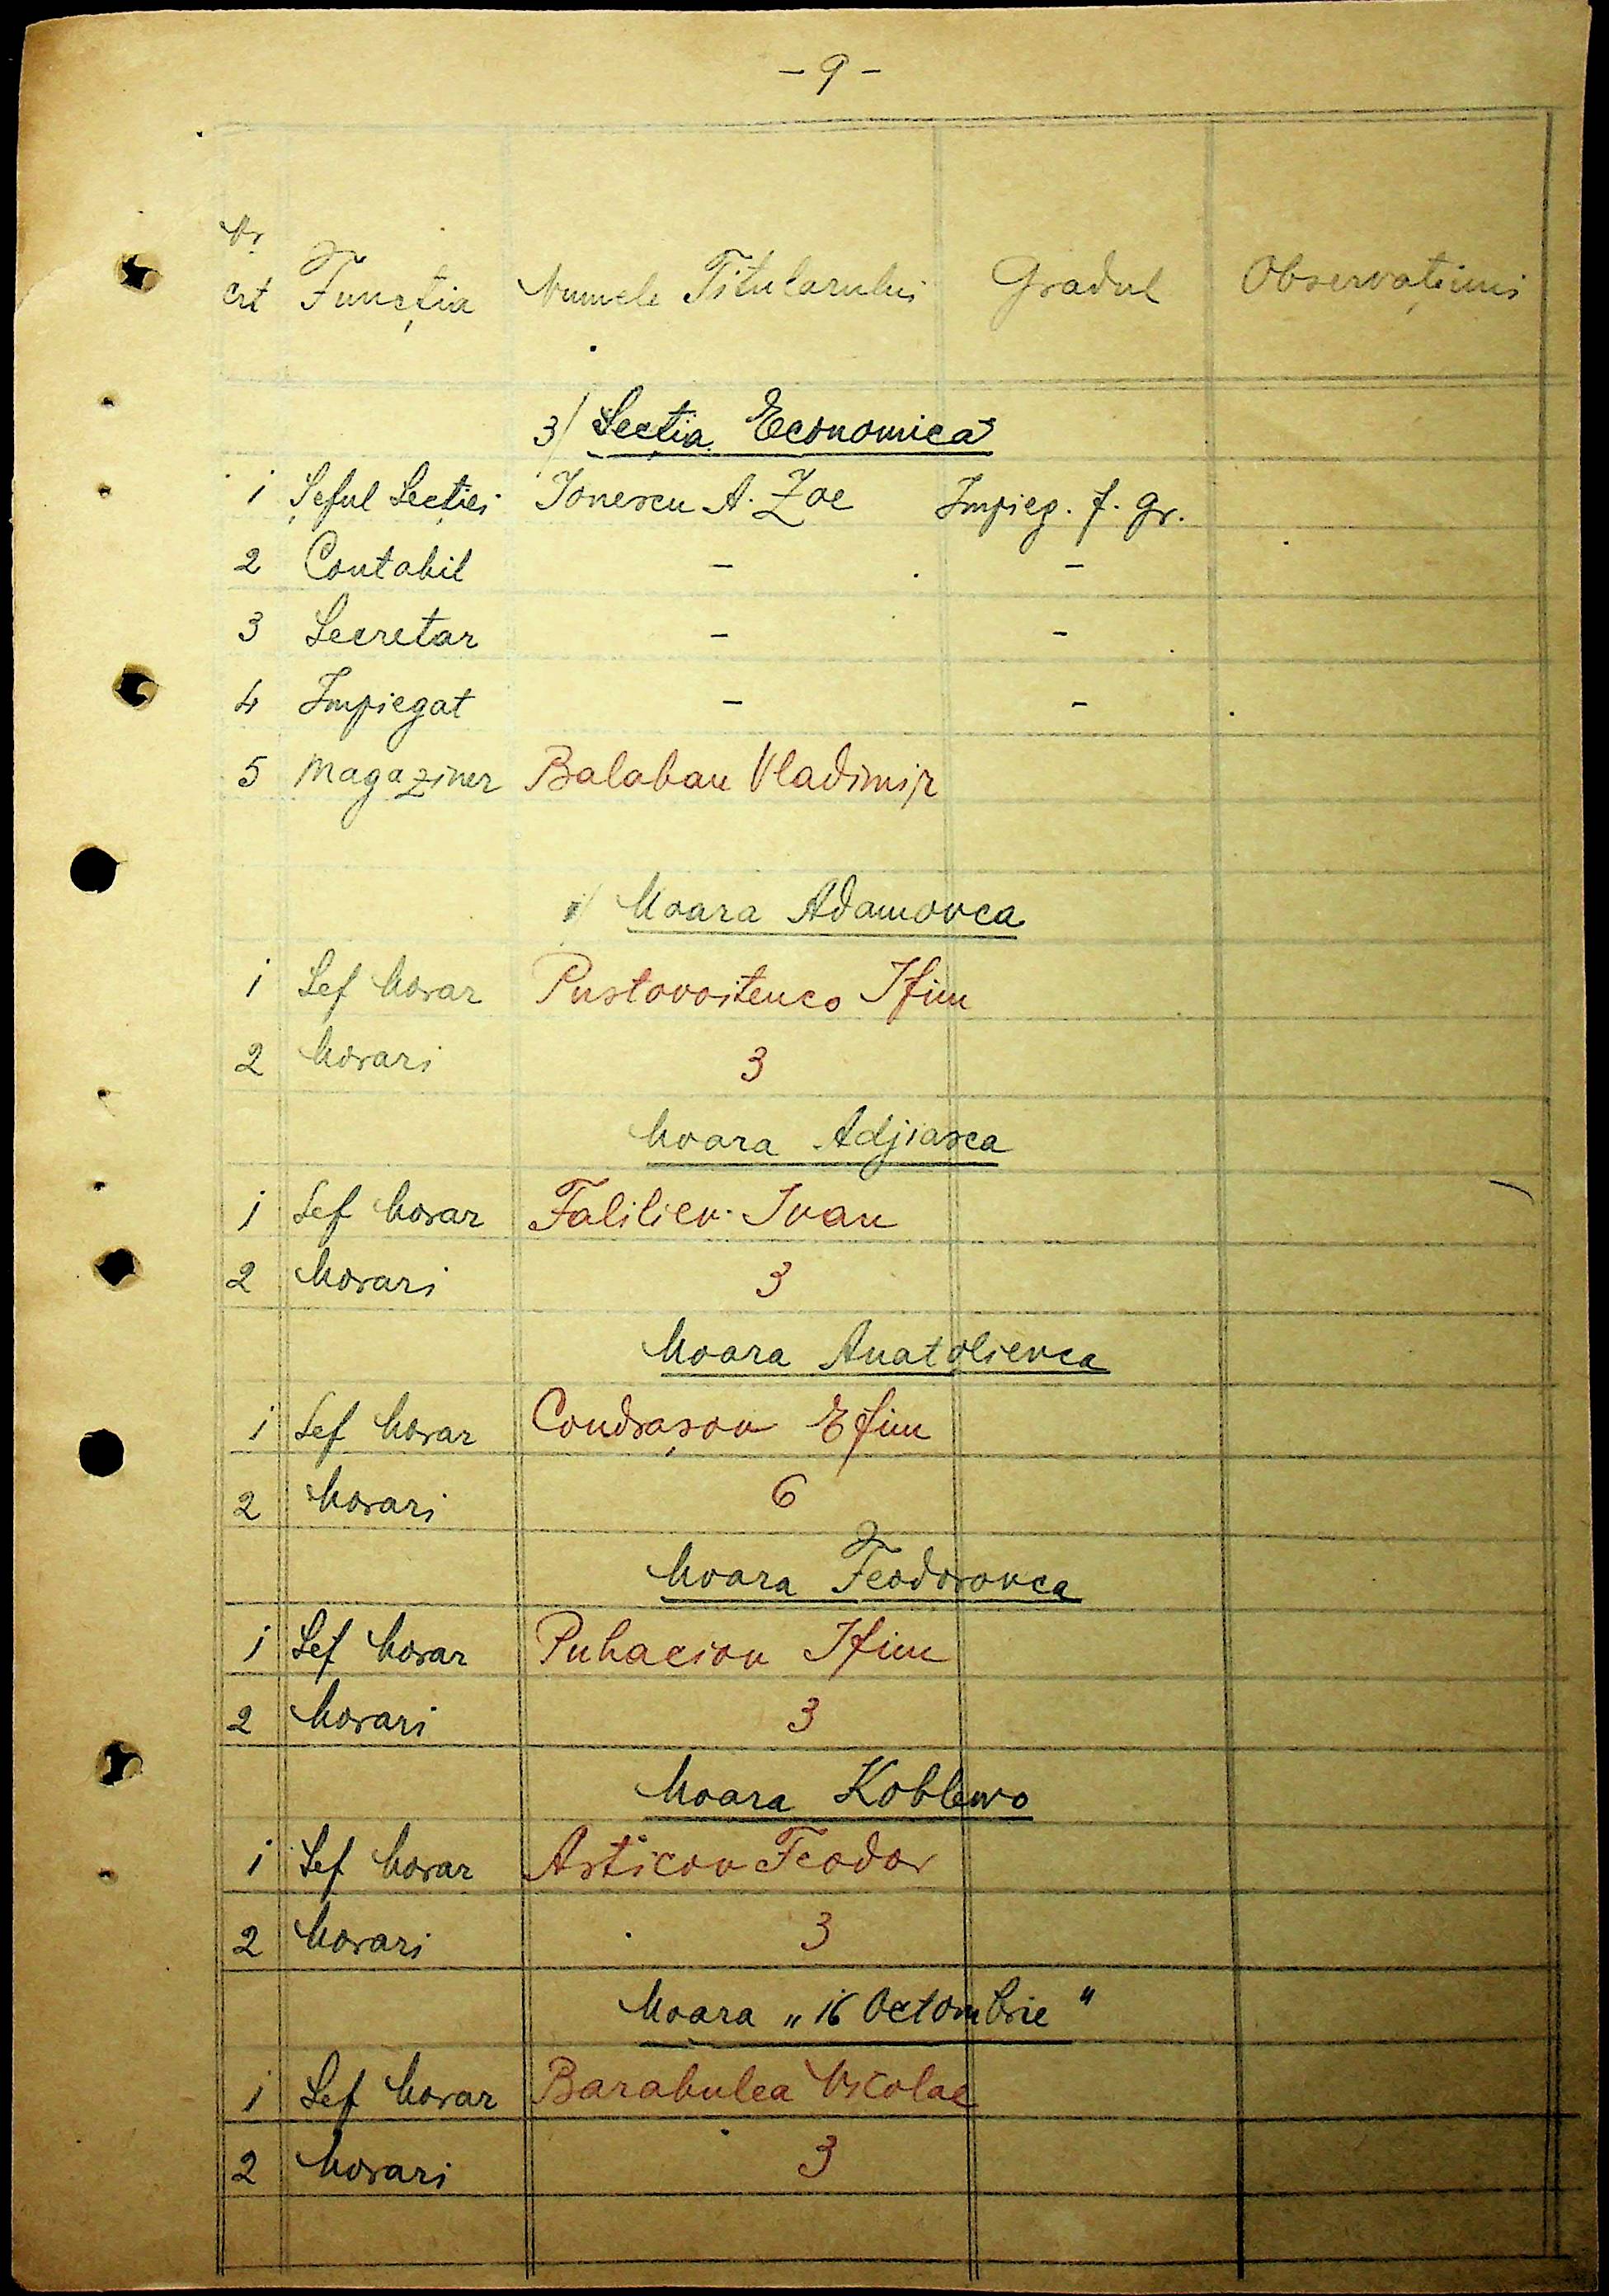 - 9 -
Nr
crt Funcția Numele Titularului Gradul Observațiuni
3/ Secția Economică
1 Șeful Secției Ionescu A. Zoe Impieg. f. gr.
2 Contabil - -
3 Secretar - -
4 Impiegat - -
5 Magaziner Balaban Vladimir
Moara Adamovca
1 Sef Morar Pustovoitenco Ifim
2 Morari 3
Moara Adjiasca
1 Sef Morar Faliliev Ivan
2 Morari 3
Moara Anatolievca
1 Sef Morar Condrașov Efim
2 Morari 6
Moara Feodorovca
1 Sef Morar Puhaciov Ifim
2 Morari 3
Moara Koblewo
1 Sef Morar Articov Feodor
2 Morari 3
Moara „16 Octombrie"
1 Sef Morar Barabulea Nicolae
2 Morari 3